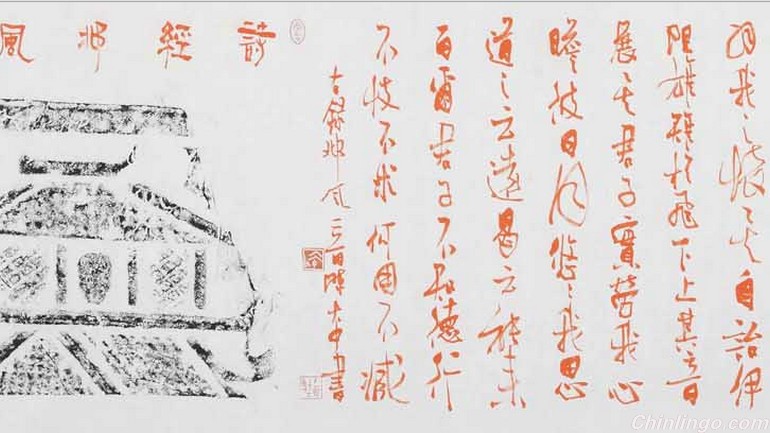 羽我之懷矣自詒伊
阻雄雉於飛下上其音
展矣君子實勞我心
瞻彼日月悠〻我思
道之云遠曷云能來
百爾君子不知德行
不忮不求何用不臧
錄邶風
書
詩經邶風
Chinlingo.com